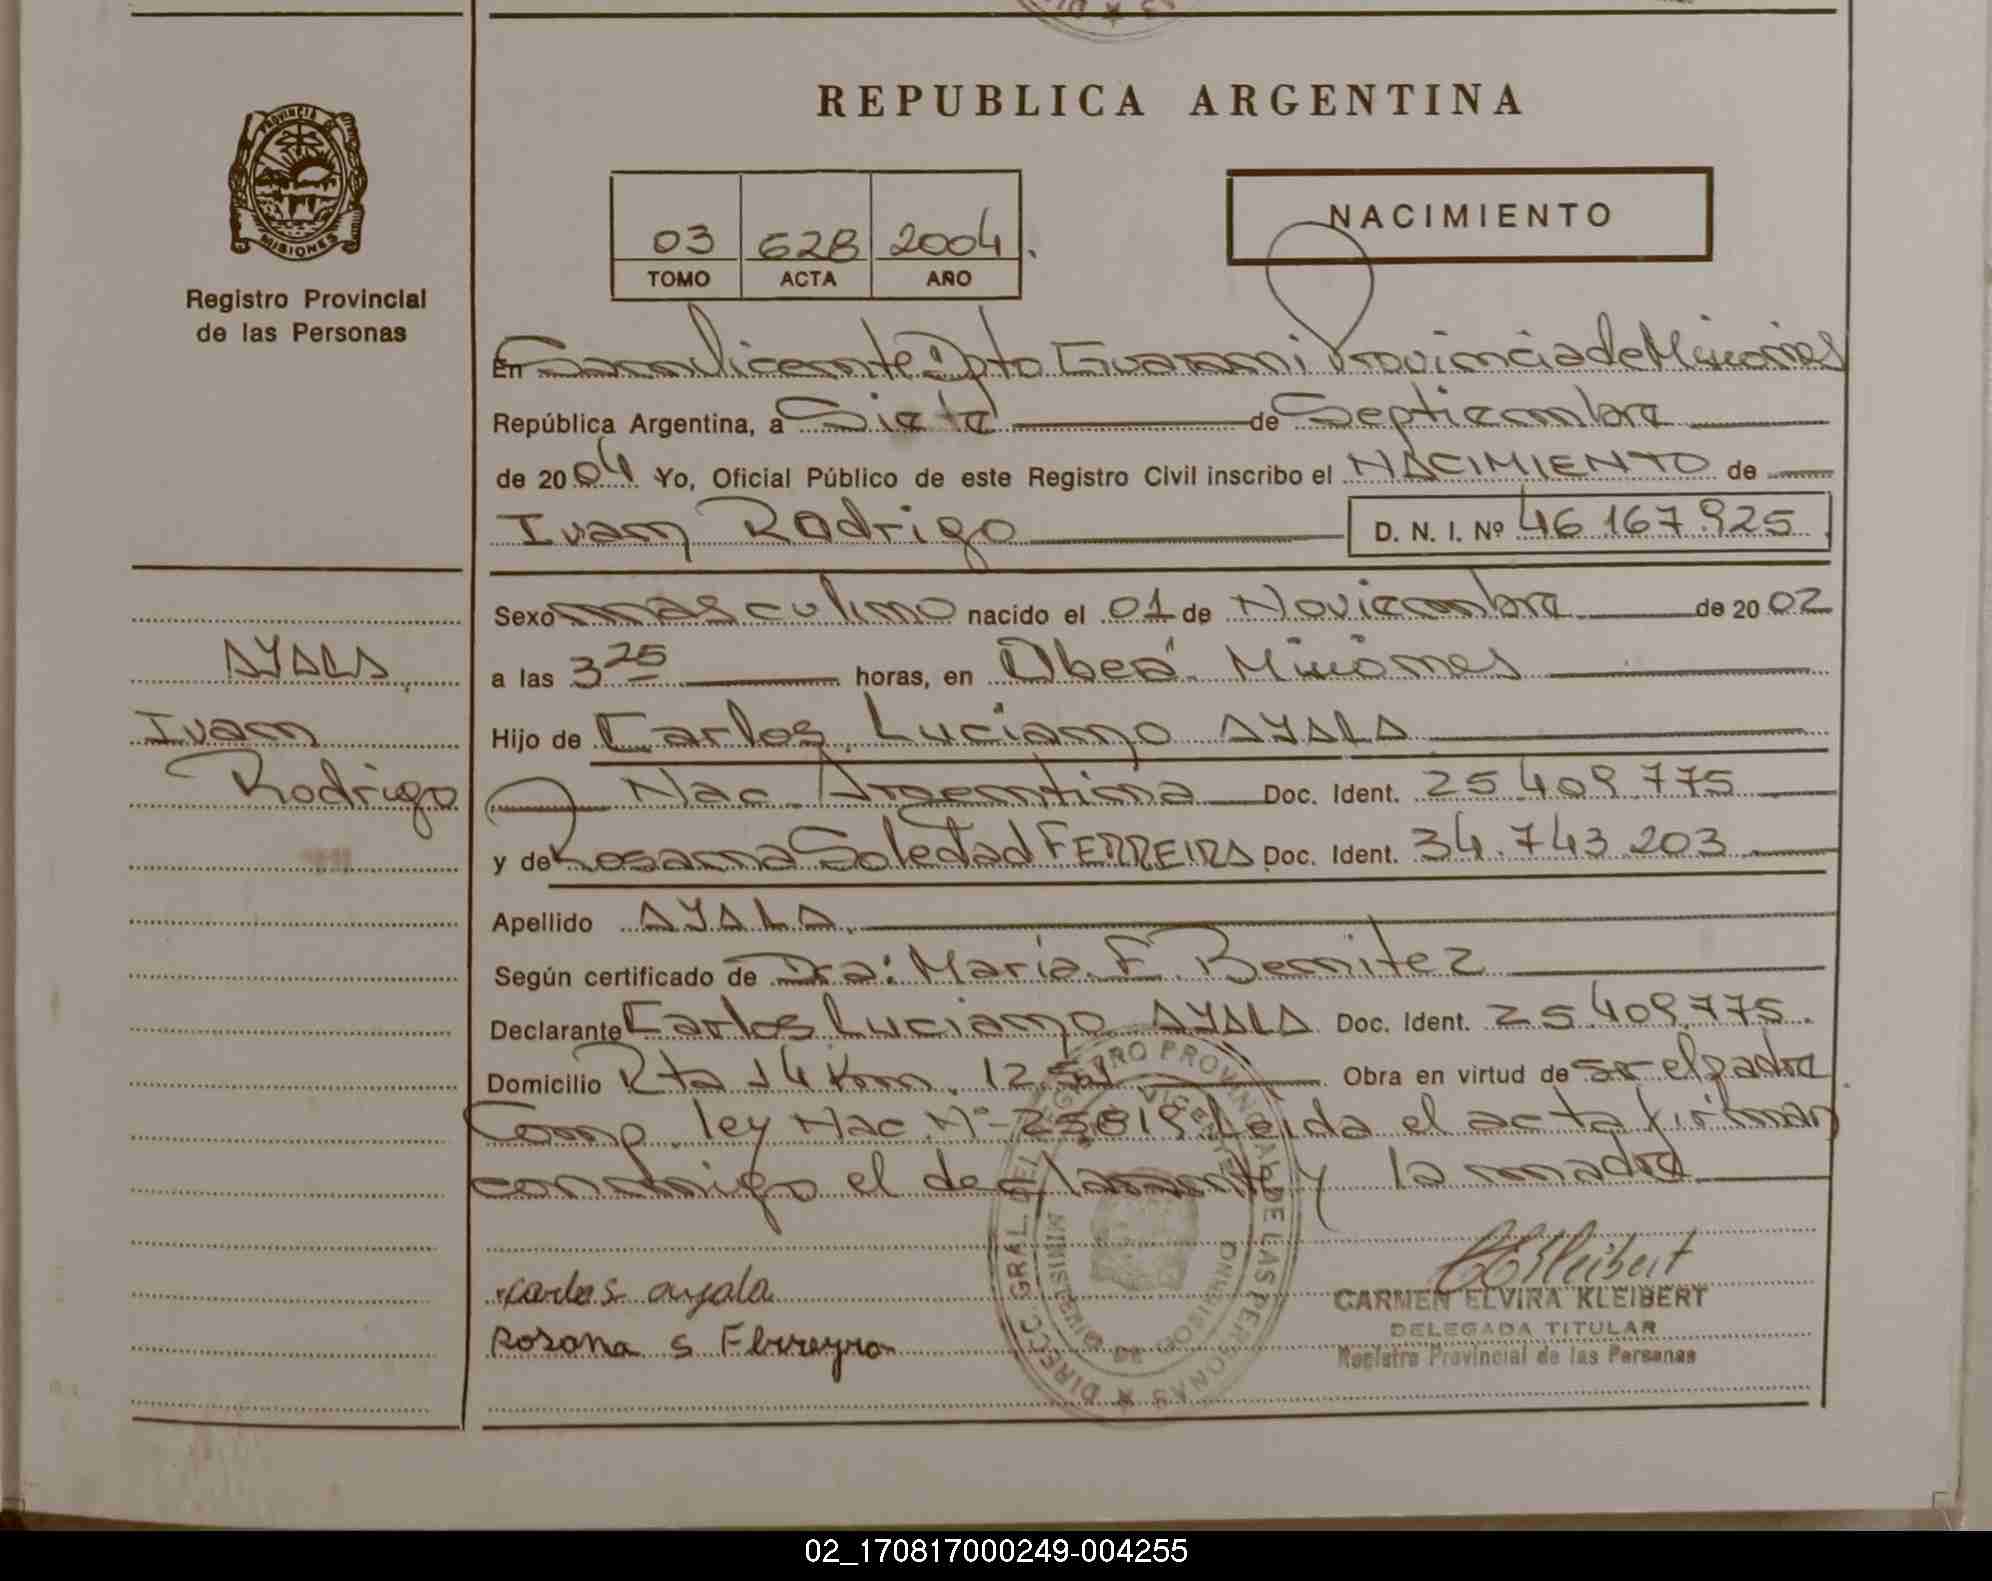 PROVINCIA DE
MISIONES
Registro Provincial
de las Personas
REPUBLICA ARGENTINA
03 628 2004.
TOMO ACTA AÑO
NACIMIENTO
En San Vicente Dpto Guarani Provincia de Misiones
República Argentina, a Siete de Septiembre
de 2004 Yo, Oficial Público de este Registro Civil inscribo el NACIMIENTO de
Ivan Rodrigo D. N. I. Nº 46.167.925
Sexo masculino nacido el 01 de Noviembre de 2002
a las 3 25 horas, en Oberá Misiones
Hijo de Carlos Luciano AYALA
Nac. Argentina Doc. Ident. 25.409.775
y de Rosana Soledad FERREIRA Doc. Ident. 34.743.203
Apellido AYALA
Según certificado de Dra: María F. Benitez
Declarante Carlos Luciano AYALA Doc. Ident. 25.409.775.
Domicilio Rta 14 Km. Obra en virtud de ser el padre
Comp. ley Nac. Nº Leida el acta firman
conmigo el declarante y la madre
AYALA,
Ivan
Rodrigo
carlos ayala
Rosana S Ferreyra
CEKleibert
CARMEN ELVIRA KLEIBERT
DELEGADA TITULAR
Registro Provincial de las Personas
DIRECC. GRAL. DEL REGISTRO PROVINCIAL DE LAS PERSONAS
02_170817000249-004255